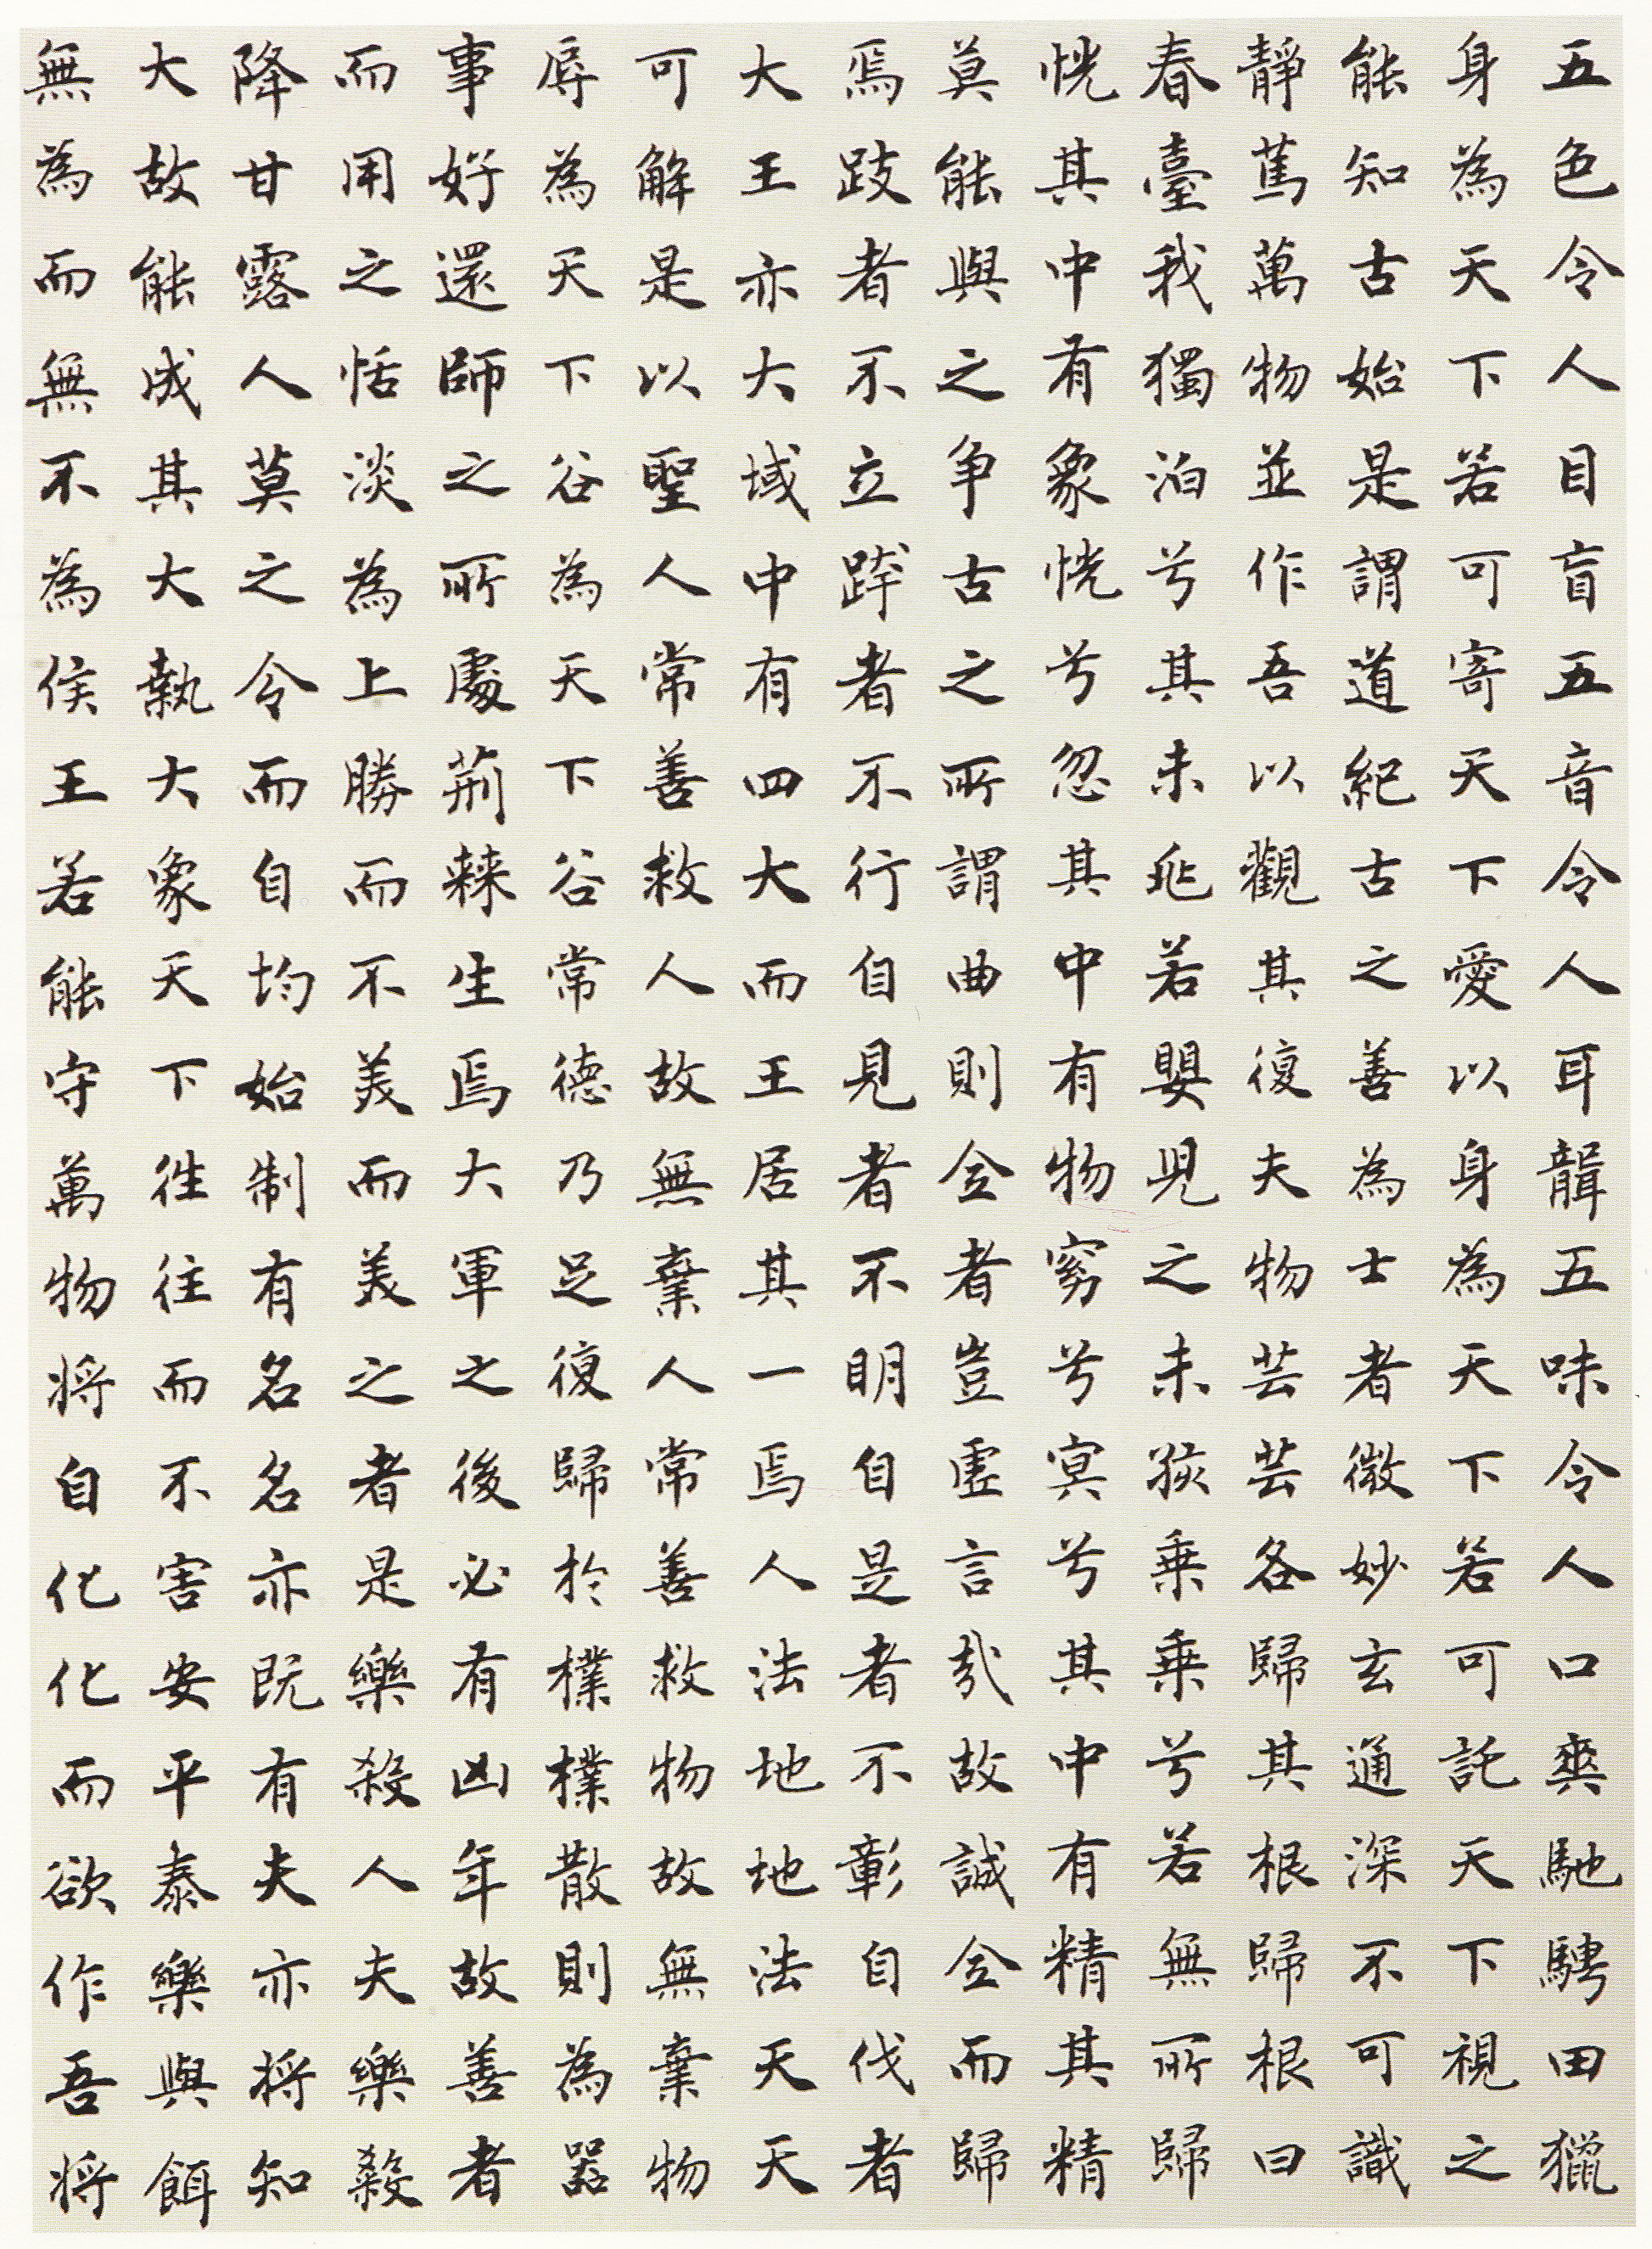 五色令人目盲五音令人耳聾五味令人口爽馳騁田獵
身為天下若可寄天下愛以身為天下若可託天下視之
能知古始是謂道紀古之善為士者微妙玄通深不可識
靜篤萬物並作吾以觀其復夫物芸芸各歸其根歸根曰
春臺我獨泊兮其未兆若嬰兒之未孩乘乘兮若無所歸
恍其中有象恍兮忽其中有物窈兮冥兮其中有精其精
莫能與之爭古之所謂曲則全者豈虛言哉故誠全而歸
焉跂者不立跨者不行自見者不明自是者不彰自伐者
大王亦大域中有四大而王居其一焉人法地地法天天
可解是以聖人常善救人故無棄人常善救物故無棄物
辱為天下谷為天下谷常德乃足復歸於樸樸散則為器
事好還師之所處荊棘生焉大軍之後必有凶年故善者
而用之恬淡為上勝而不美而美之者是樂殺人夫樂殺
降甘露人莫之令而自均始制有名名亦既有夫亦將知
大故能成其大執大象天下往往而不害安平泰樂與餌
無為而無不為侯王若能守萬物將自化化而欲作吾將